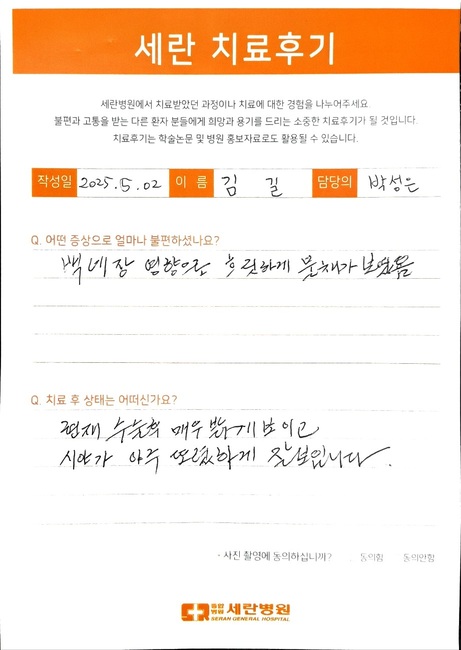 세란 치료후기
세란병원에서 치료받았던 과정이나 치료에 대한 경험을 나누어주세요.
불편과 고통을 받는 다른 환자 분들에게 희망과 용기를 드리는 소중한 치료후기가 될 것입니다.
치료후기는 학술논문 및 병원 홍보자료로도 활용될 수 있습니다.
작성일 2025.5.02 이 름 김 길 담당의 박성은
Q. 어떤 증상으로 얼마나 불편하셨나요?
백내장 영향으로 흐릿하게 물체가 보였음
Q. 치료 후 상태는 어떠신가요?
현재 수술후 매우 밝게 보이고
시야가 아주 또렷하게 잘보입니다.
- 사진 촬영에 동의하십니까? 동의함 동의안함
종합병원 세란병원
SERAN GENERAL HOSPITAL